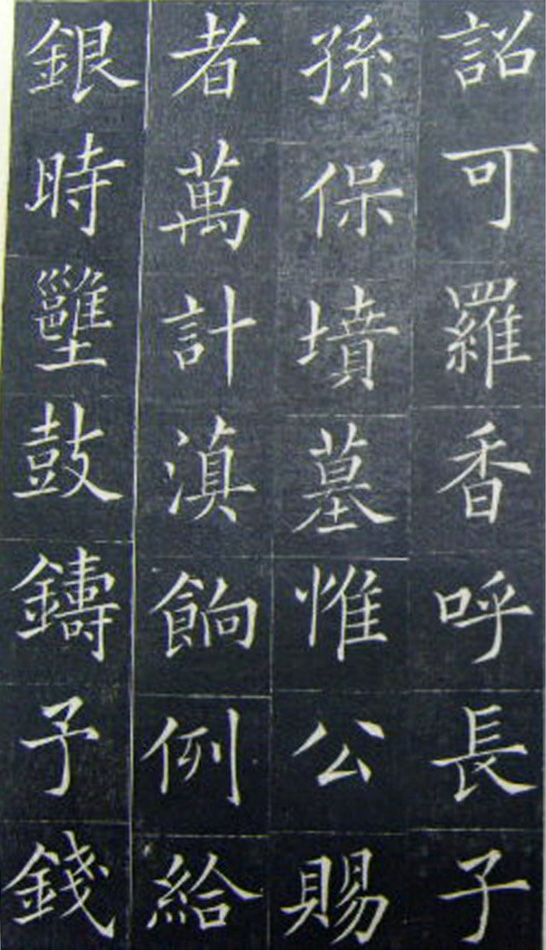 詔可羅香呼長子
孫保墳墓惟公賜
者萬計滇餉例給
銀時壅鼓鑄予錢